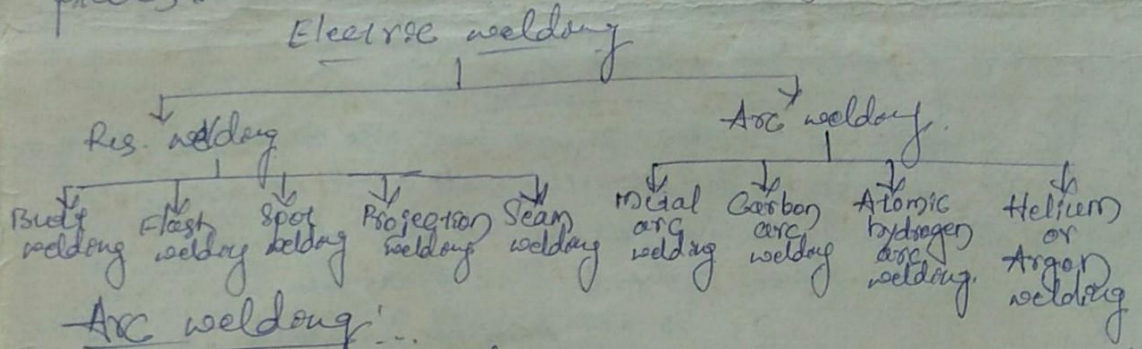 Electric welding
Res. welding
Arc welding.
Butt welding
Flash welding
Spot welding
Projection welding
Seam welding
Metal arc welding
Carbon arc welding
Atomic hydrogen arc welding.
Helium or Argon welding
Arc welding: